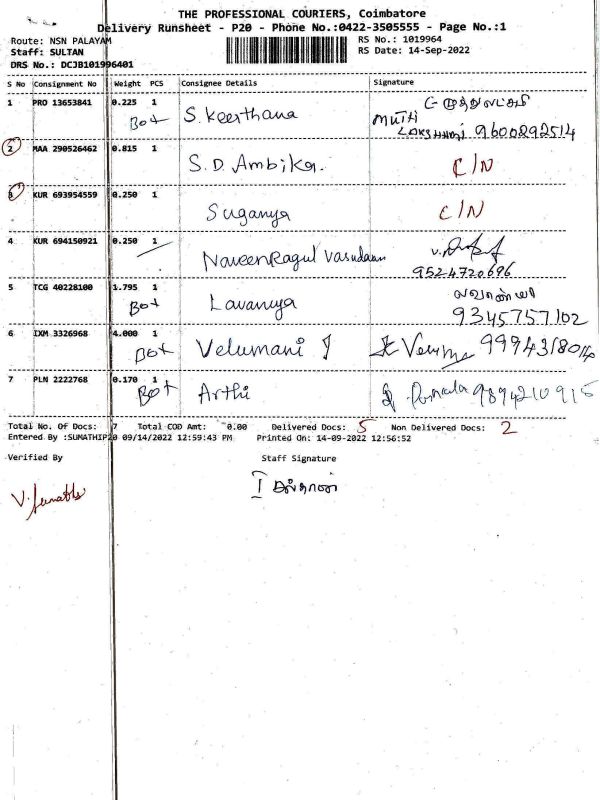 THE PROFESSIONAL COURIERS, Coimbatore
Delivery Runsheet - P20 - Phone No.:0422-3505555 - Page No.:1
Route: NSN PALAYAM RS No.: 1019964
Staff: SULTAN RS Date: 14-Sep-2022
DRS No.: DCJB101996401
S No Consignment No Weight PCS Consignee Details Signature
1 PRO 13653841 0.225 1 Box S. Keerthana முத்துலட்சுமி
MUTH LAKSHMI 9600292514
2 MAA 290526462 0.815 1 S.D. Ambika. C/N
3 KUR 693954559 0.250 1 Suganya C/N
4 KUR 694150921 0.250 1 NaveenRagul Vasudavan
9524720696
5 TCG 40228100 1.795 1 Box Lavanya லாவண்யா
9345757102
6 IXM 3326968 4.000 1 Box Velumani J
7 PLN 2222768 0.170 1 Box Arthi 9894210915
Total No. Of Docs: 7 Total COD Amt: 0.00 Delivered Docs: 5 Non Delivered Docs: 2
Entered By :SUMATHIP20 09/14/2022 12:59:43 PM Printed On: 14-09-2022 12:56:52
Verified By Staff Signature